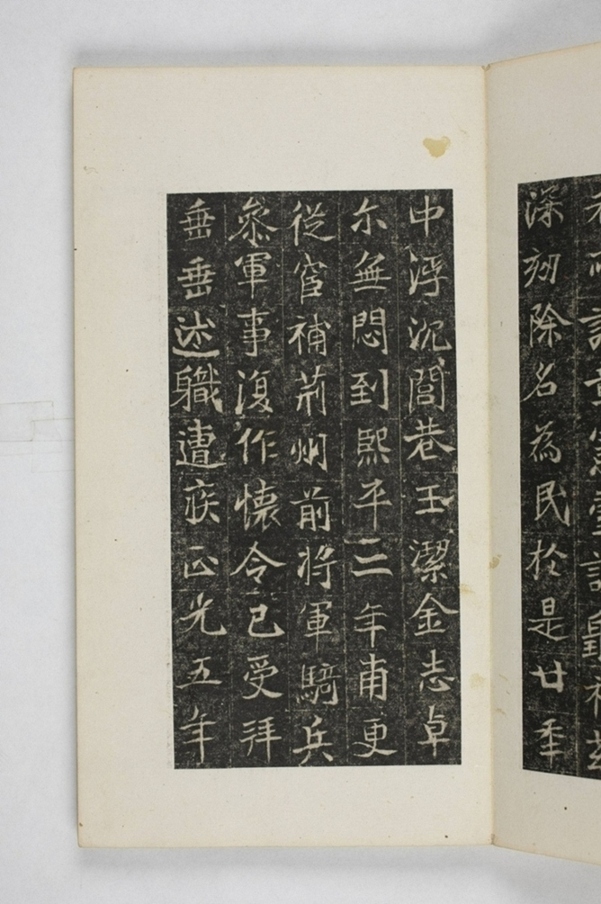 深劾除名為民於是廿年
中浮沉閭巷玉潔金志卓
尒無悶到熙平二年甫更
從宦補荊州前將軍騎兵
叅軍事復作懷令已受拜
垂垂述職遭疾正光五年